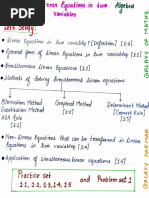 Linear Equations in two variables
Algebra
Let's Study:
• Linear Equations in two variable? [Definition] [1.1]
• General form of Linear Equation in two variables [1.2]
• Simultaneous linear Equations [1.1]
• Methods of Solving Simultaneous linear Equations
Elimination Method
Graphical Method
Determinant Method
Substitution Method
[Cramer's Rule]
ASA Rule
• Non-linear Equations that can be transformed in linear
Equations in two variable.
• Application of Simultaneous linear Equations
Practice set
1.1, 1.2, 1.3, 1.4, 1.5
and Problem set 1
GALAXY OF MATHS